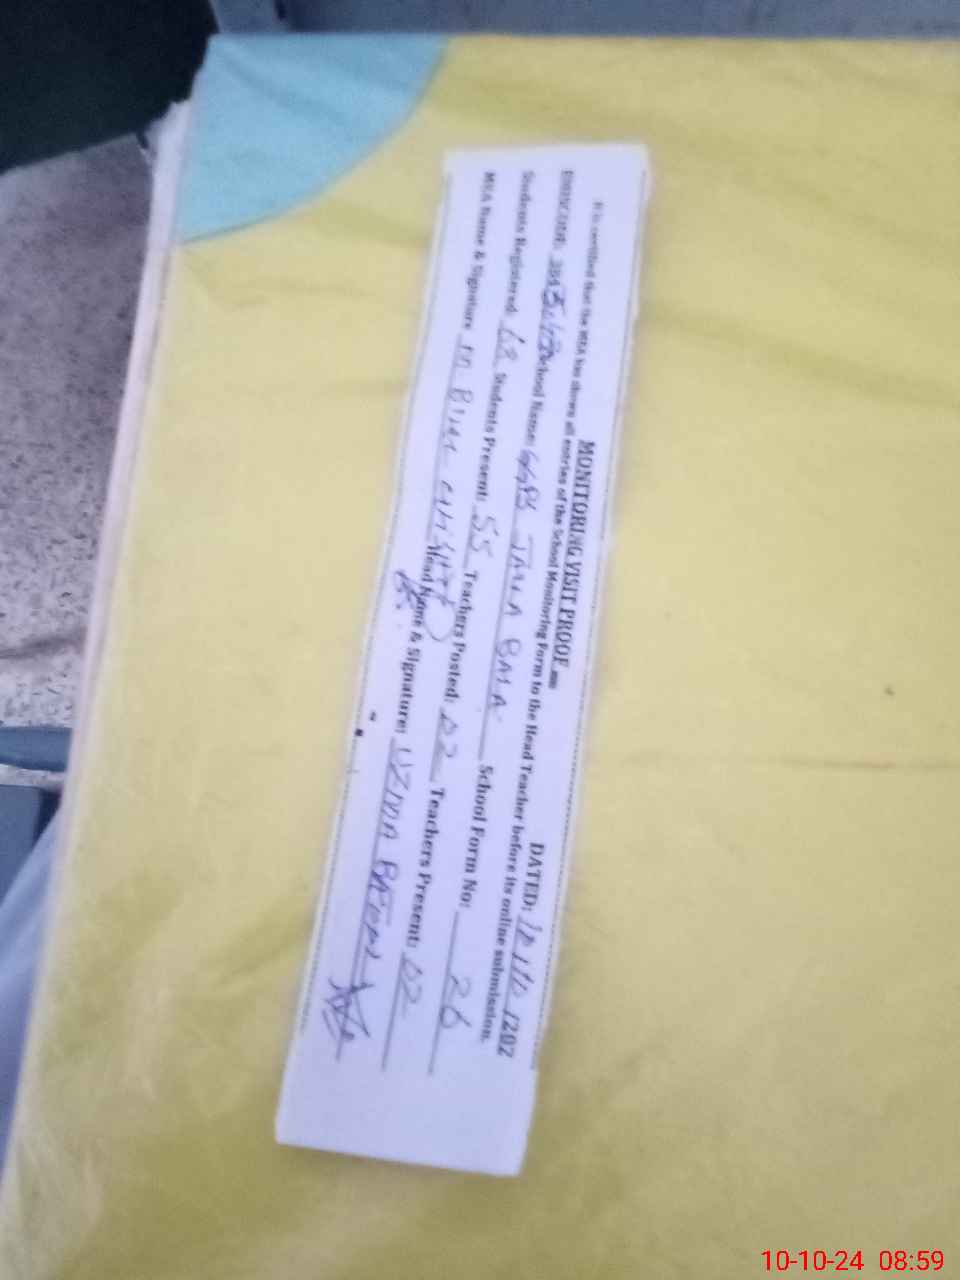 MONITORING VISIT PROOF
DATED: 10/10/202
It is certified that the MEA has shown all entries of the School Monitoring Form to the Head Teacher before its online submission.
School Name: GGPS BALA
School Form No: 26
Students Registered: 68 Students Present: 55 Teachers Posted: 02 Teachers Present: 02
MEA Name & Signature
Head Name & Signature: UZMA BATOOL
10-10-24 08:59